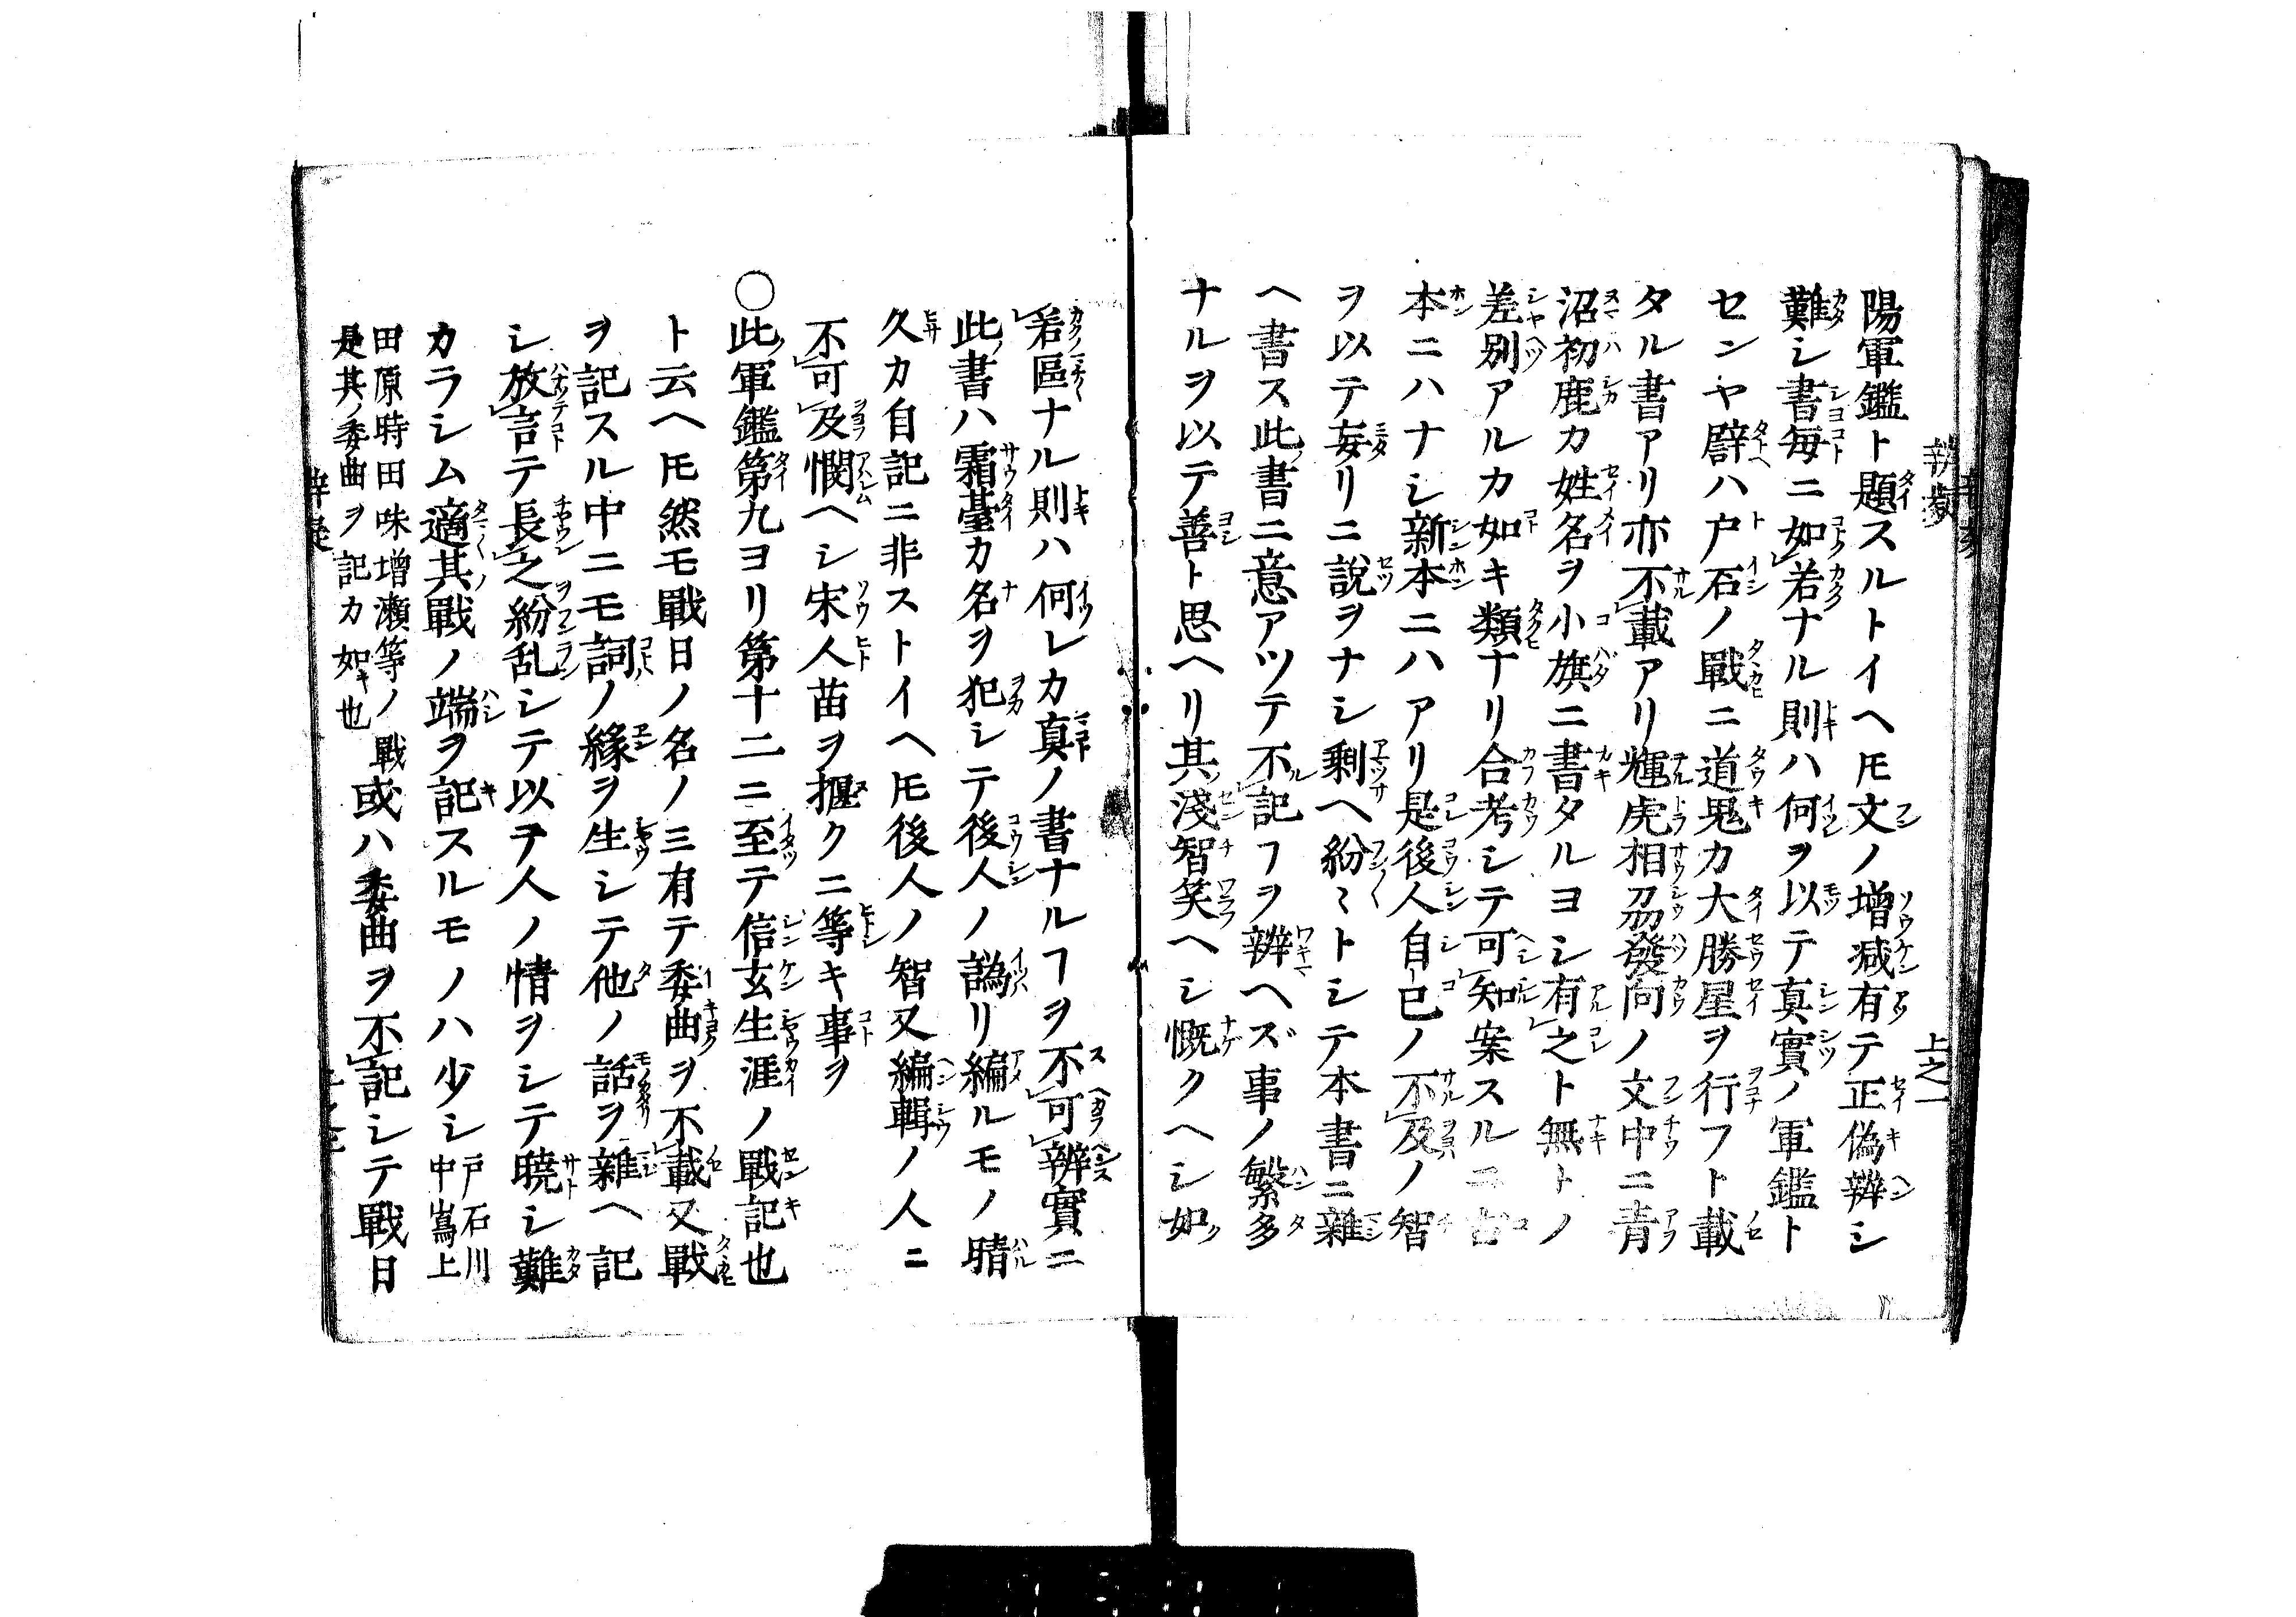 陽軍鑑ト題スルトイヘ𪜈文ノ增减有テ正偽辨シ
難シ書毎ニ如若ナル則ハ何ヲ以テ真實ノ軍鑑ト
センヤ辟ハ户石ノ戰ニ道鬼カ大勝星ヲ行フト載
タル書アリ亦不載アリ輝虎相刕發向ノ文中ニ青
沼初鹿カ姓名ヲ小旗ニ書タルヨシ有之ト無トノ
差别アルカ如キ類ナリ合考シテ可知案スルニ古
本ニハナシ新本ニハアリ是後人自己ノ不及ノ智
ヲ以テ妄リニ說ヲナシ剰ヘ紛〻トシテ本書ニ雜
ヘ書ス此書ニ意アツテ不記ヿヲ辨ヘズ事ノ繁多
ナルヲ以テ善ト思ヘリ其淺智笑ヘシ慨クヘシ如
若區ナル則ハ何レカ真ノ書ナルヿヲ不可辨實ニ
此書ハ霜臺カ名ヲ犯シテ後人ノ譌リ編ルモノ晴
久カ自記ニ非ストイヘ𪜈後人ノ智又編輯ノ人ニ
不可及憫ヘシ宋人苗ヲ揠クニ等キ事ヲ
〇此軍鑑第九ヨリ第十二ニ至テ信玄生涯ノ戰記也
ト云ヘ𪜈然モ戰日ノ名ノミ有テ委曲ヲ不載又戰
ヲ記スル中ニモ詞ノ緣ヲ生シテ他ノ話ヲ雜ヘ記
シ放言テ長之紛乱シテ以テ人ノ情ヲシテ曉シ難
カラシム適其戰ノ端ヲ記スルモノハ少シ戸石川中嶌上
田原時田味增瀬等ノ戰是其委曲ヲ記カ如キ也或ハ委曲ヲ不記シテ戰日